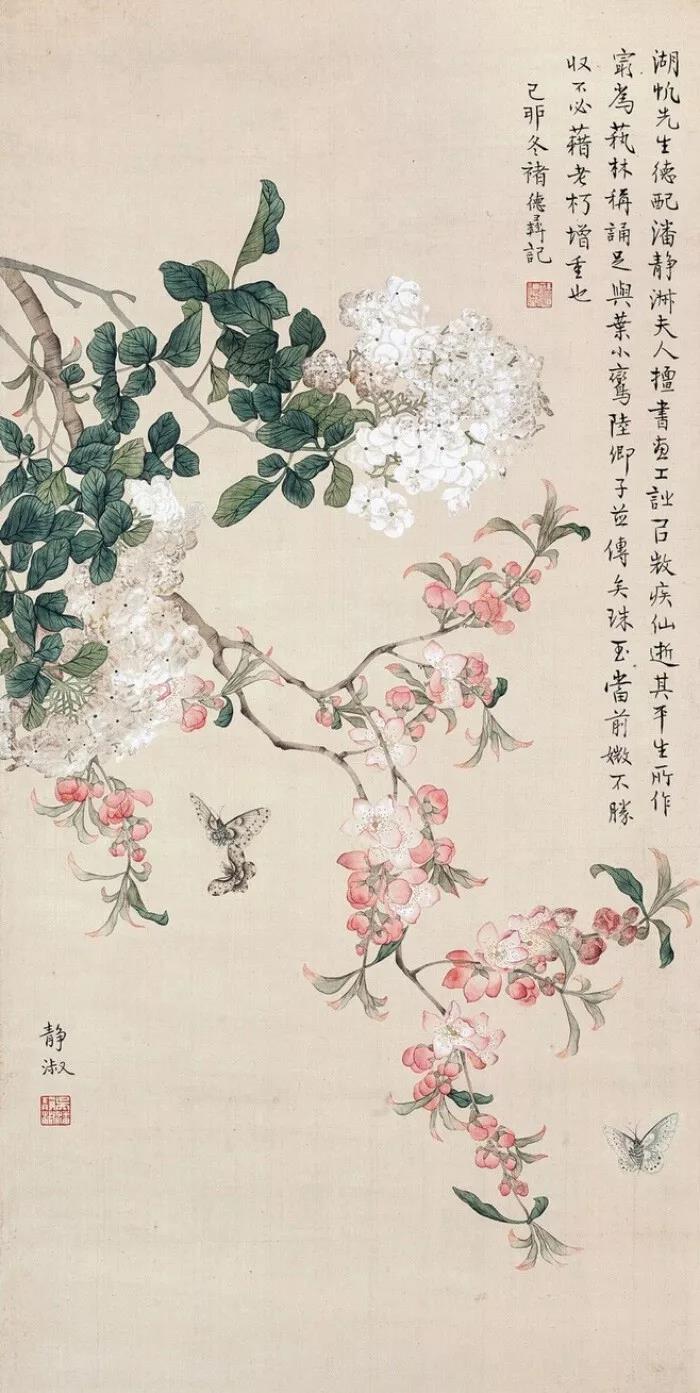 湖帆先生德配潘静淑夫人擅書画工詞㠯微疾仙逝其平生所作
㝡為藝林稱誦足與葉小鸞陸卿子並傳矣珠玉當前媺不勝
収不必藉老朽增重也
己卯冬褚德彝記
静
淑